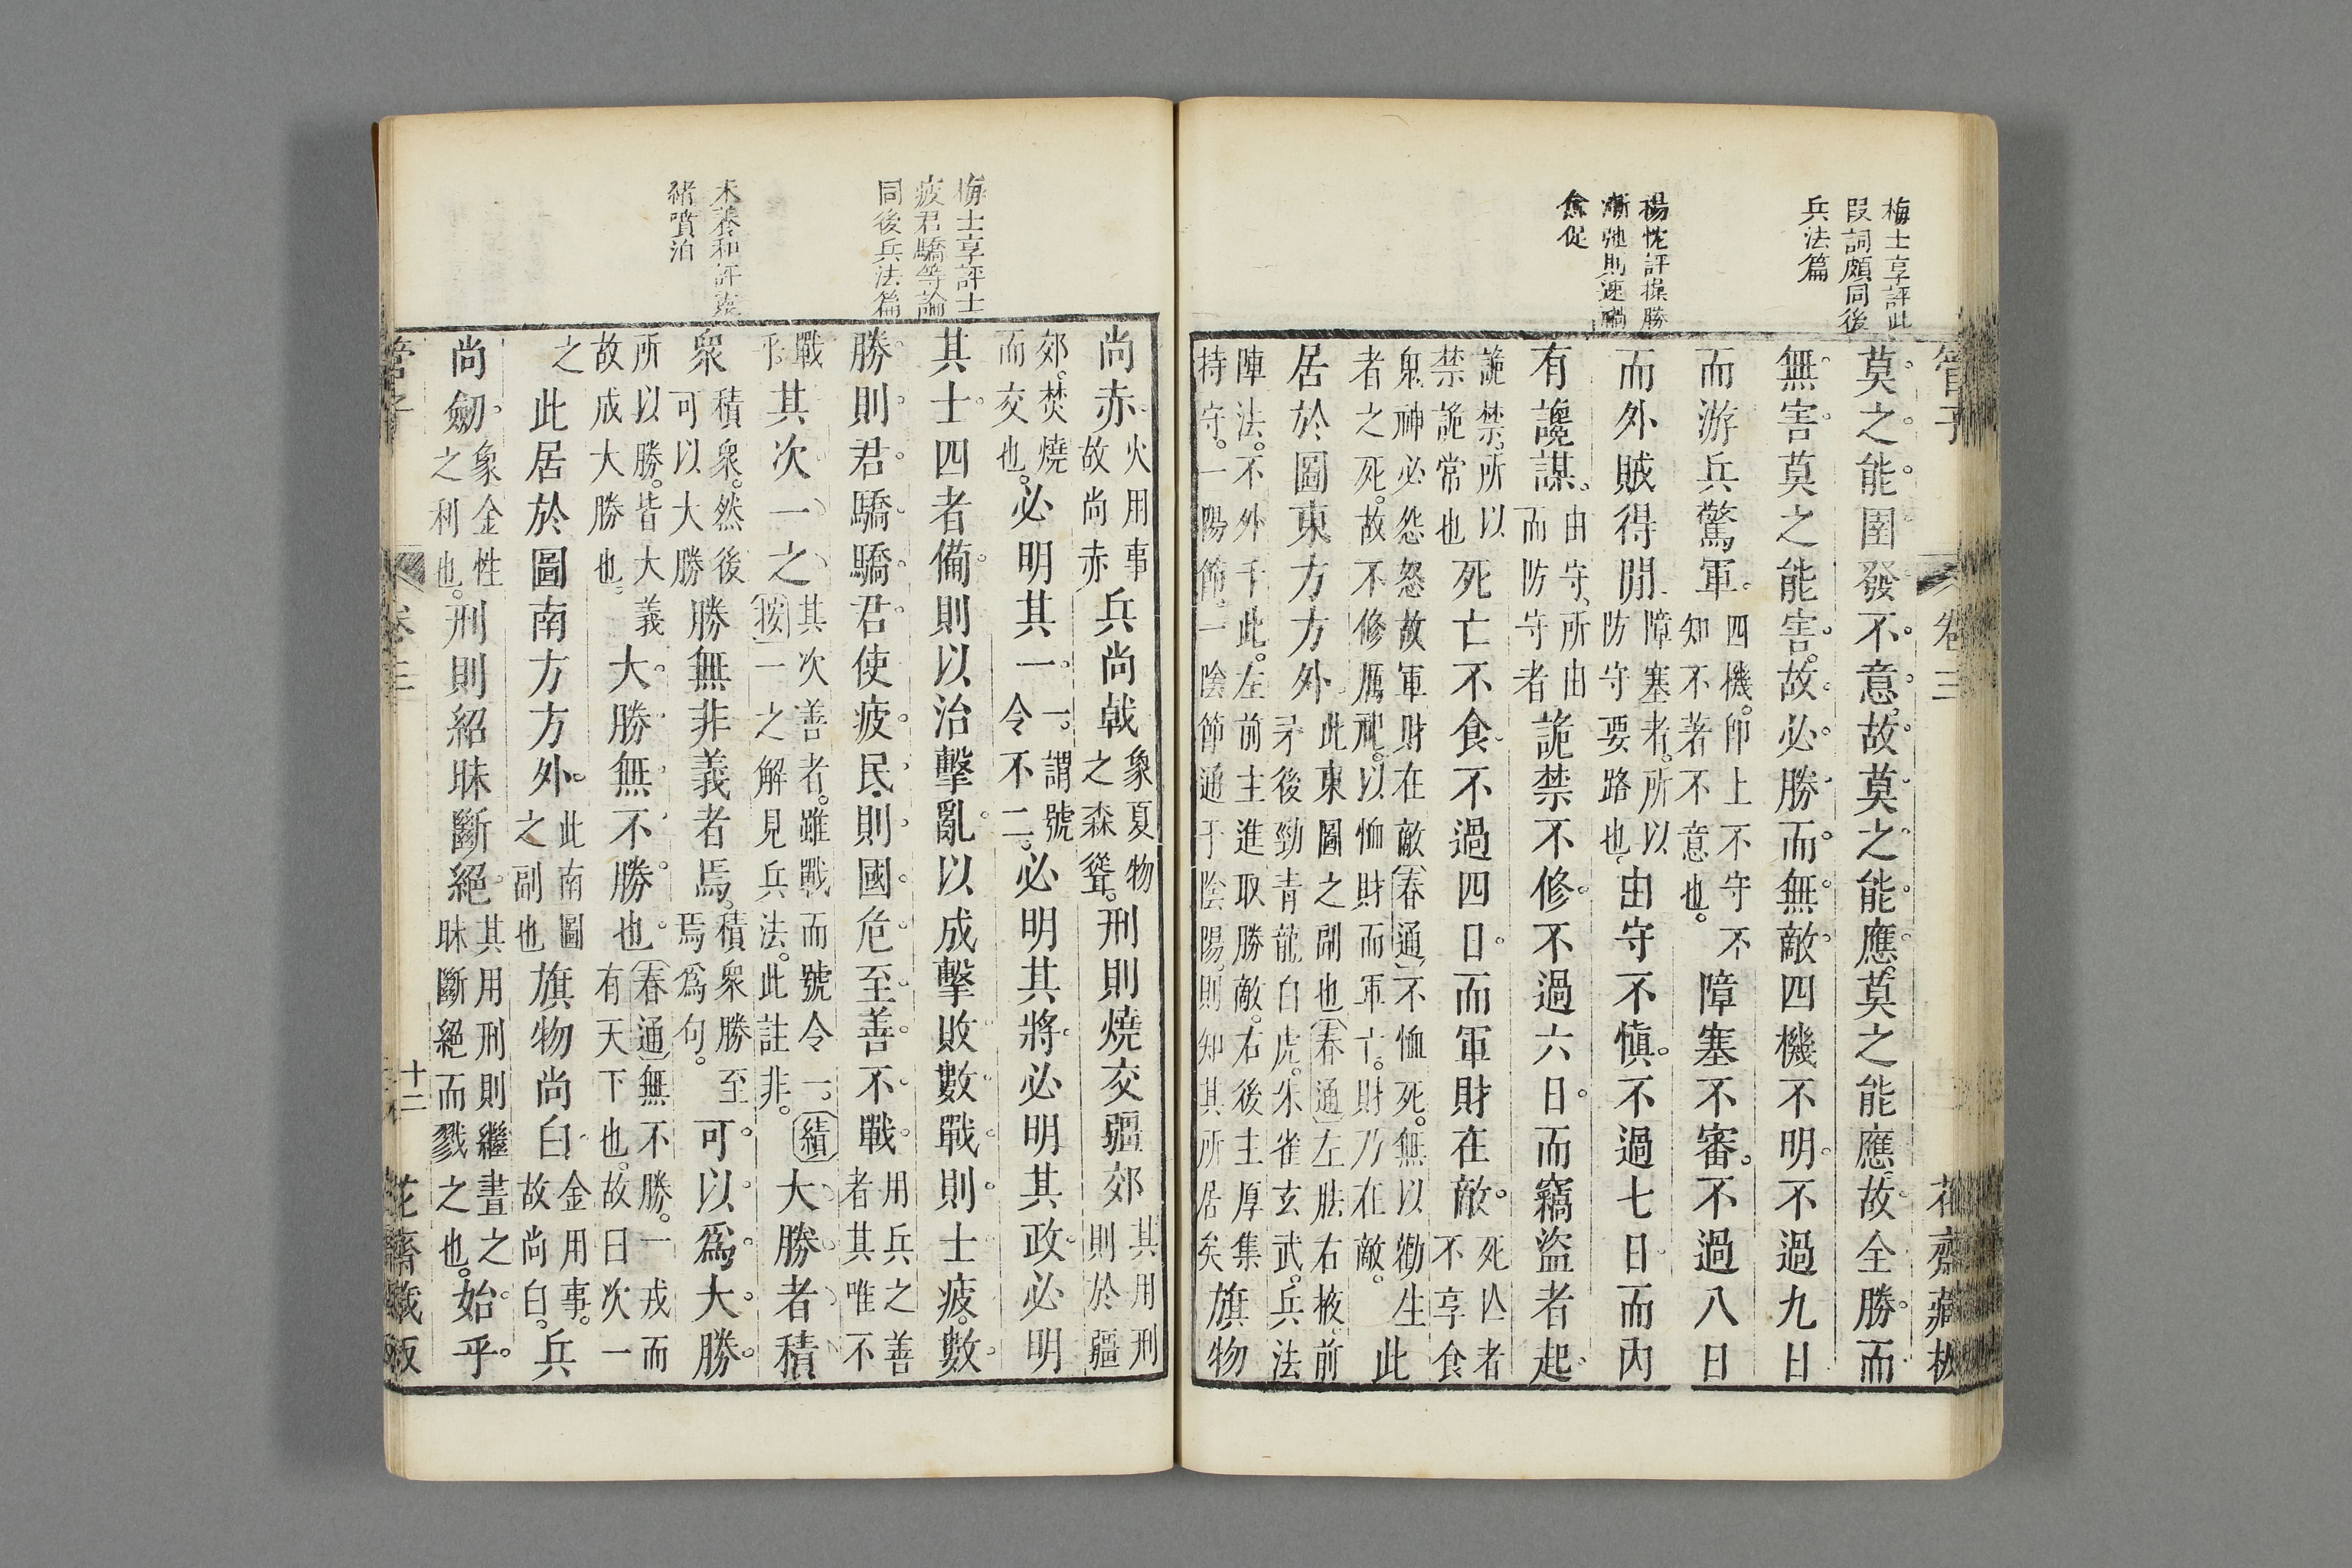 管子 卷三 花齋藏板
梅士享評此
段詞頗同後
兵法篇
楊忱評操勝
漸弛則速禍
愈促
莫之能圉發不意故莫之能應莫之能應故全勝而
無害莫之能害故必勝而無敵四機不明不過九日
而游兵驚軍四機即上不守不知不著不意也障塞不審不過八日
而外賊得間障塞者所以防守要路也由守不慎不過七日而內
有讒謀由守所由而防守者詭禁不修不過六日而竊盜者起
詭禁所以禁詭常也死亡不食不過四日而軍財在敵死亾者不享食
鬼神必怨怒故軍財在敵春通不恤死無以勸生者之死故不修厲祀以恤財而軍亡財乃在敵此
居於圖東方方外此東圖之副也春通左胠右掖前矛後勁青龍白虎朱雀玄武兵法
陣法不外于此左前主進取勝敵右後主厚集持守一陽節一陰節通于陰陽則知其所居矣旗物
梅士享評士
疲君驕等論
同後兵法篇
朱養和評
緒噴泊
尚赤火用事故尚赤兵尚戟象夏物之森聳刑則燒交疆郊其用刑則於疆
郊焚燒而交也必明其一一謂號令不二必明其將必明其政必明
其士四者備則以治擊亂以成擊敗數戰則士疲數
勝則君驕驕君使疲民則國危至善不戰用兵之善者其唯不
戰乎其次一之其次善者雖戰而號令一績按一之解見兵法此註非大勝者積
眾積衆然後可以大勝勝無非義者焉積衆勝至焉爲句可以爲大勝
所以勝皆大義故成大勝也大勝無不勝也春通無不勝一戎而有天下也故曰次一
之此居於圖南方方外此南圖之副也旗物尚白金用事故尚白兵
尚劒象金性之利也刑則紹昧斷絕其用刑則繼晝之昧斷絕而戮之也始乎
管子 卷三 十二 花齋藏板